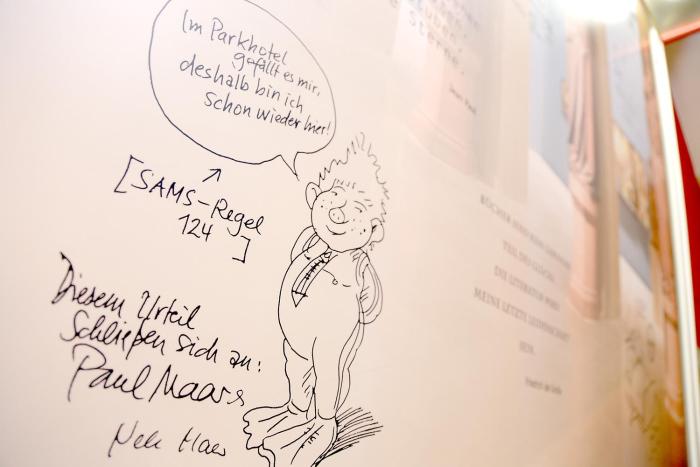 Im Parkhotel
gefällt es mir,
deshalb bin ich
schon wieder hier!
[SAMS-Regel
124
]
Diesem Urteil
schließen sich an:
Paul Maar
Nele Maar
Sterne.
Jean Paul
BÜCHER SIND KEIN
TEIL DES GLÜCKS.
DIE LITERATUR WIRD
MEINE LETZTE LEIDENSCHAFT
SEIN.
Friedrich der Große